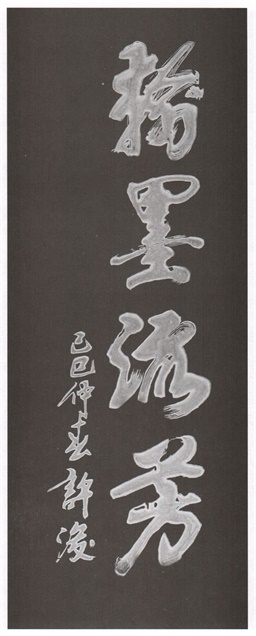 翰墨流芳
己巳仲春許浚